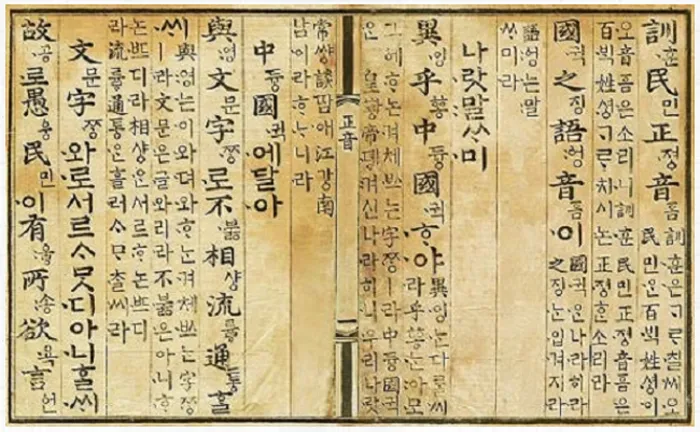 訓훈民민正졍音ᅙᅳᆷ訓훈은ᄀᆞᄅᆞ칠씨오民민ᄋᆞᆫ百ᄇᆡᆨ姓셩이
오音ᅙᅳᆷ은소리니訓훈民민正졍音ᅙᅳᆷ은
百ᄇᆡᆨ姓셩ᄀᆞᄅᆞ치시논正졍ᄒᆞᆫ소리라
國귁之징語ᅌᅥᆼ音ᅙᅳᆷ이國귁ᄋᆞᆫ나라히라之징ᄂᆞᆫ입겨지라
語ᅌᅥᆼ는말
ᄊᆞ미라
나랏말ᄊᆞ미
異잉乎ᅘᅩᆼ中듀ᇰ國귁ᄒᆞ야異잉ᄂᆞᆫ다ᄅᆞᆯ씨라乎ᅘᅩᆼᄂᆞᆫ아모
그ᅌᅦᄒᆞ논겨체쓰는字ᄍᆞᆼㅣ라中듀ᇰ國귁
ᄋᆞᆫ 皇ᅘᅪᆼ帝뎽겨신나라히니우리나랏
正音
常쌰ᇰ談땀애江가ᇰ南
남이라ᄒᆞᄂᆞ니라
中듀ᇰ國귁에달아
與영文문字ᄍᆞᆼ로不부ᇙ相샤ᇰ流류ᇢ通토ᇰᄒᆞᆯ
ᄊᆡ與영는이와뎌와ᄒᆞᄂᆞᆫ겨체쓰는字ᄍᆞᆼ
ㅣ라文문은글와리라不부ᇙ은아니ᄒᆞ
논ᄠᅳ디라相샤ᇰᄋᆞᆫ서르ᄒᆞ논ᄠᅳ디
라流류ᇢ通토ᇰᄋᆞᆫ흘러ᄉᆞᄆᆞᄎᆞᆯ씨라
文문字ᄍᆞᆼ와로서르ᄉᆞᄆᆞᆺ디아니ᄒᆞᆯᄊᆡ
故공로愚ᅌᅮᆼ民민이有우ᇢ所송欲욕言언